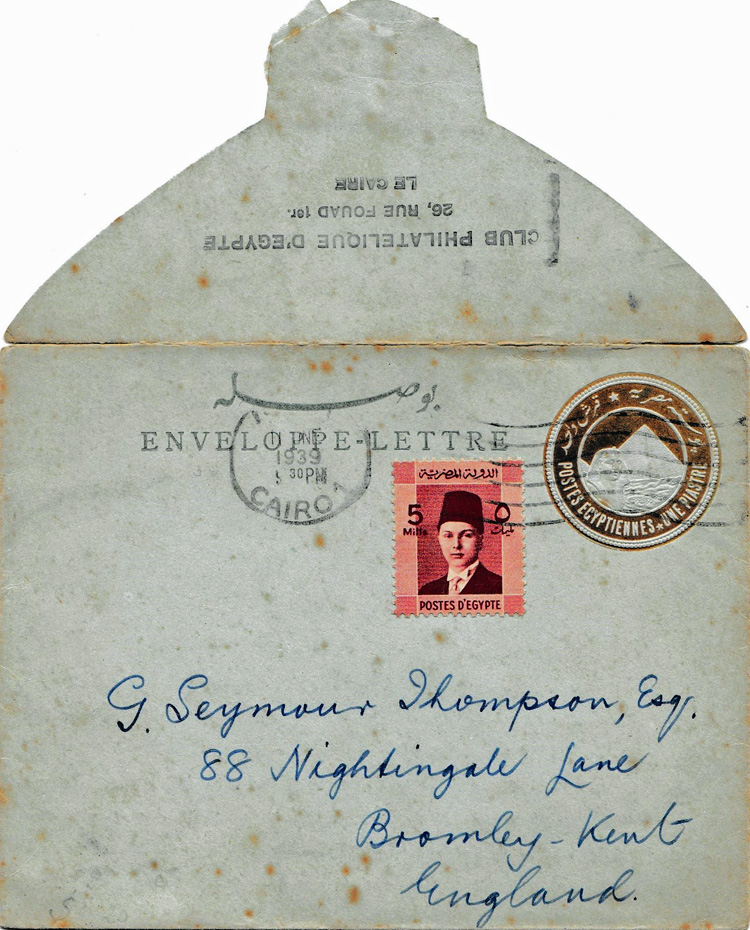 CLUB PHILATELIQUE D'EGYPTE
26, RUE FOUAD 1er.
LE CAIRE
بوصله
ENVELOPPE-LETTRE
1939
30 PM
CAIRO
POSTES EGYPTIENNES ★ UNE PIASTRE
الدولة المصرية
5 ٥
Mills مليمات
POSTES D'EGYPTE
G. Seymour Thompson, Esq.
88 Nightingale Lane
Bromley - Kent
England.